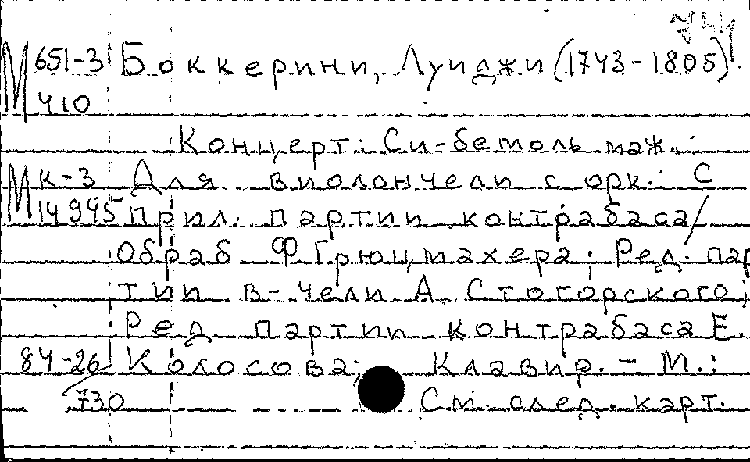 М 651-3 Боккерини, Луиджи (1743-1805).
410
Концерт: Си-бемоль маж.:
М К-3 Для виолончели с орк.: С
14945 прил. партии контрабаса /
Обраб. Ф. Грюцмахера; Ред. пар
тии в-чели А. Стогорского;
Ред. партии контрабаса Е.
84-26 Колосова; Клавир. - М.:
730 См. след. карт.